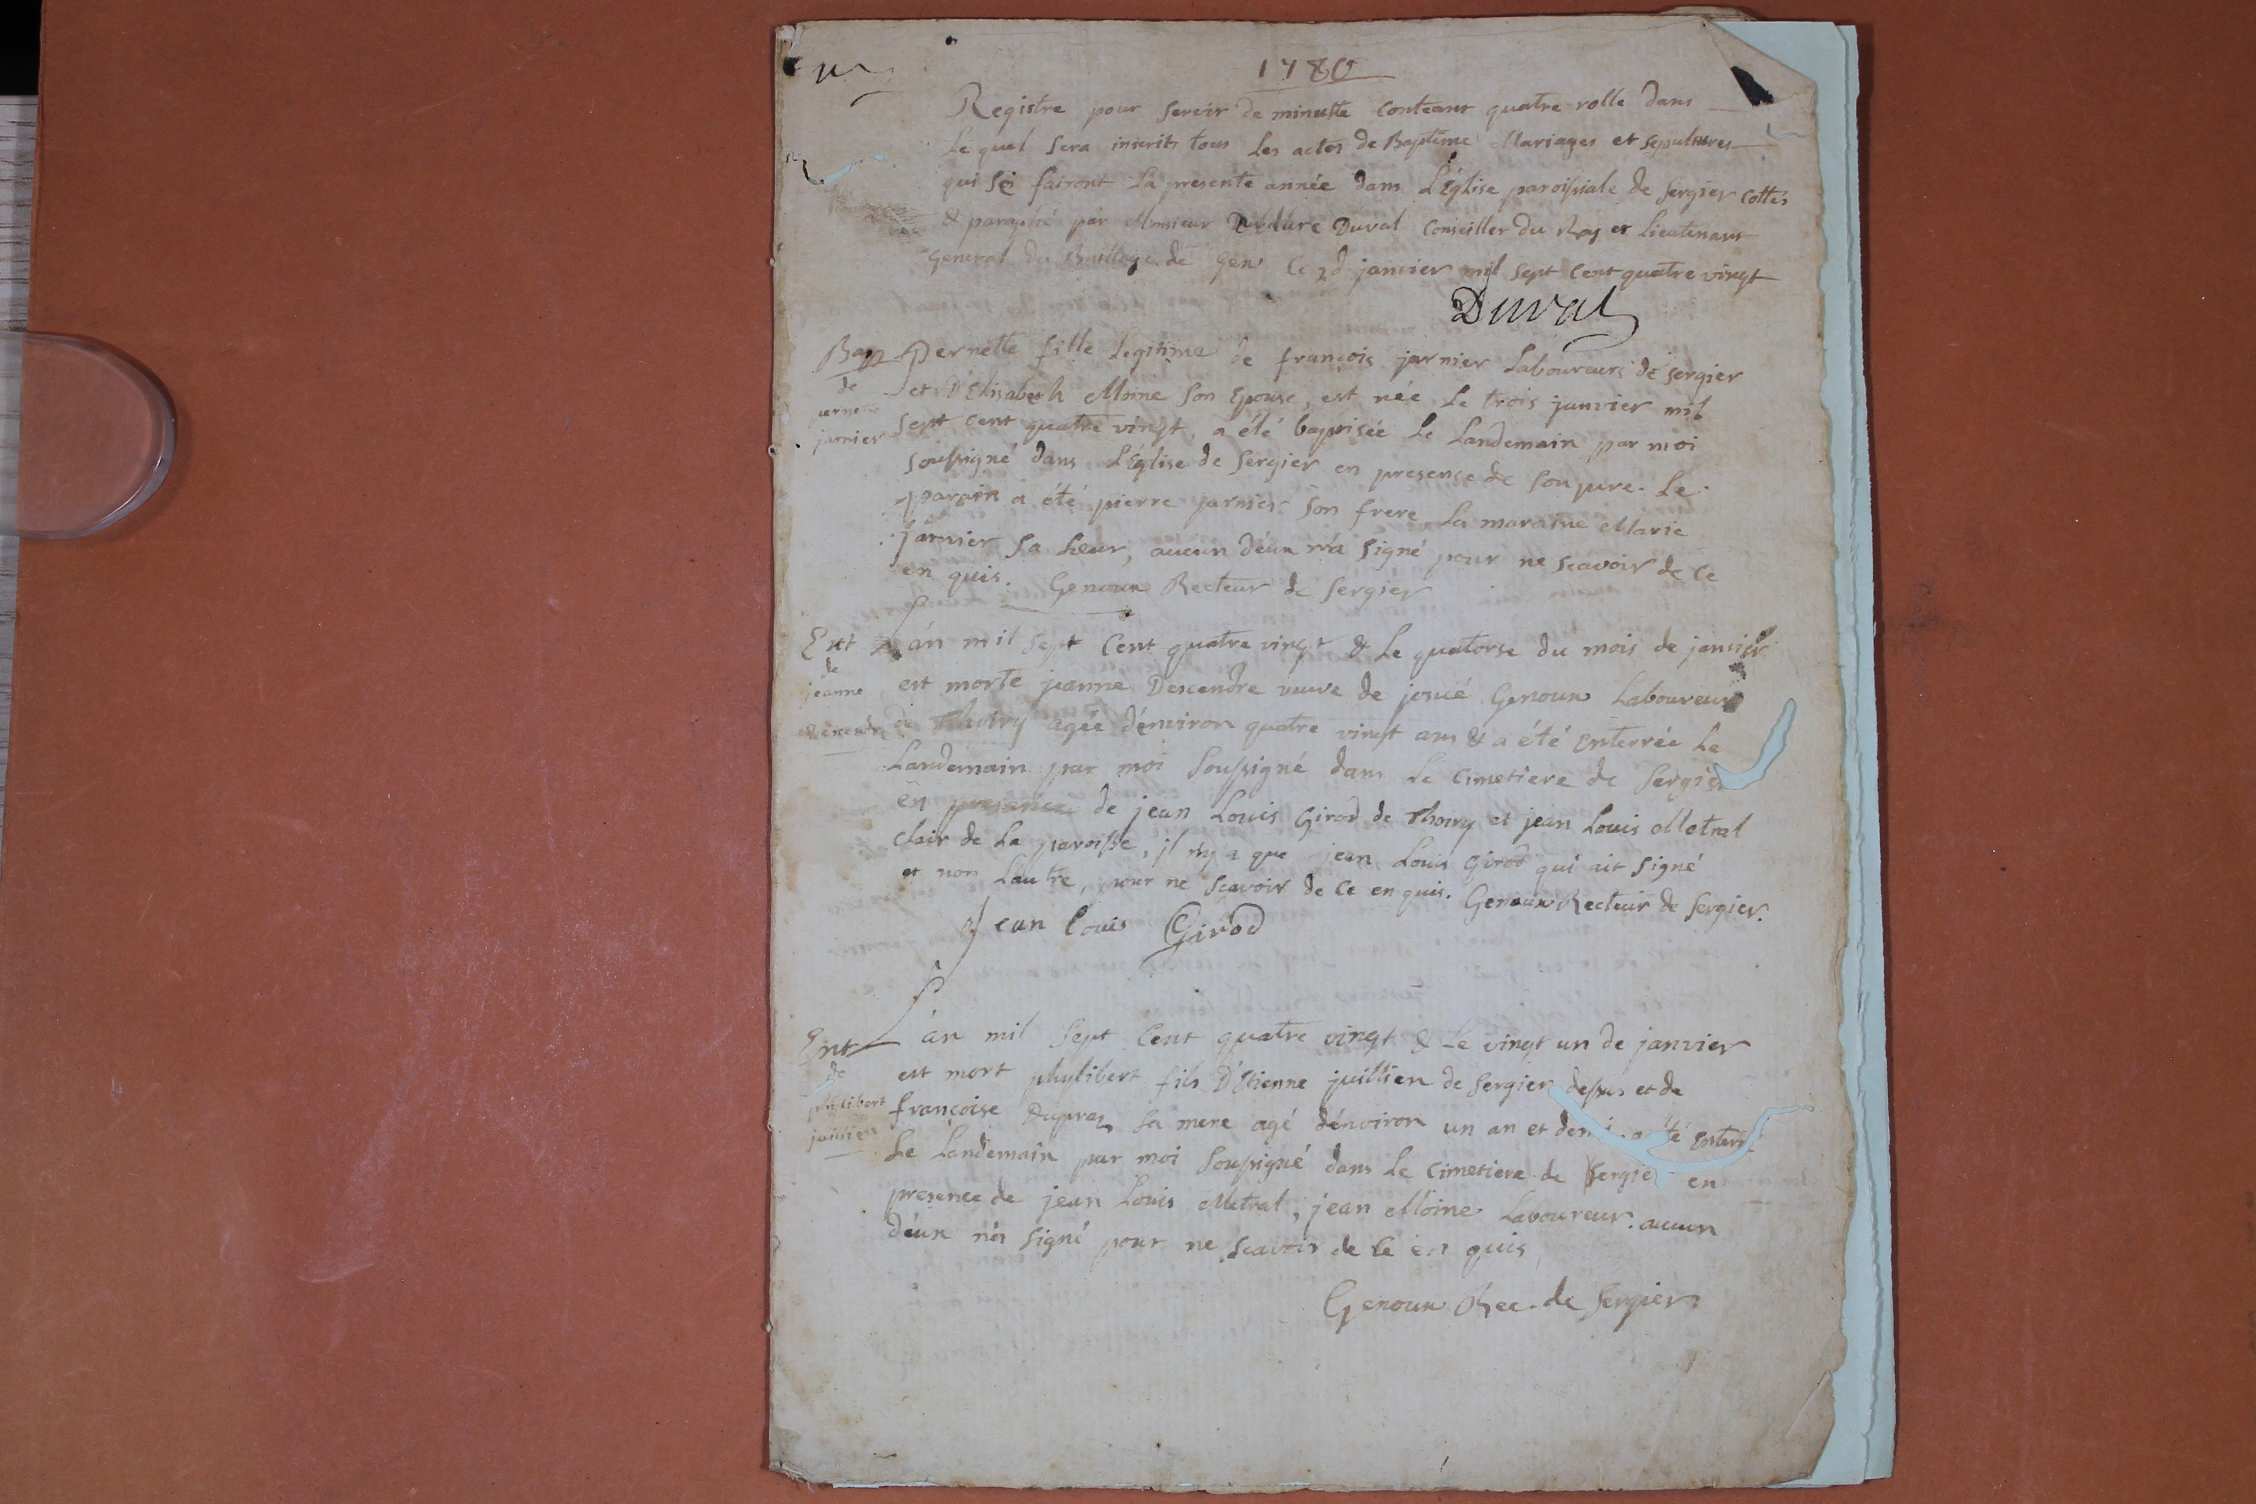 1780
Registre pour servir de minutte contenant quatre rolle dans
Le quel sera inscrits tous Les actes de Baptême Mariages et sepultures
qui se fairont La presente année dans L'Église paroissiale de Sergier Cottés
& paraphé par Monsieur Duval Conseiller du Roy et Lieutenant
General du Baillage de Gex Le janvier mil sept cent quatre vingt
Duval
Bap
de
pernette
jarnier
Pernette fille Legitime de françois jarnier Laboureurs de Sergier
et D'Elisabeth Moine son Epouse, est née Le trois janvier mil
sept cent quatre vingt, a été baptisée Le Landemain par moi
soussigné dans L'Église de Sergier en presense de son pere. Le
parain a été pierre jarnier son frere La maraine Marie
jarnier sa sœur, aucun d'eun n'a signé pour ne scavoir de ce
en quis. Genoux Recteur de Sergier
Ent
de
jeanne
Descendre
L'an mil sept cent quatre vingt & Le quatorse du mois de janvier
est morte jeanne Descendre veuve de josué Genoux Laboureur
de Thoiry agée d'environ quatre vingt ans & a été enterrée Le
Landemain par moi soussigné dans Le cimetiere de Sergier
en presence de jean Louis Girod de Thoiry et jean Louis Metral
clair de La paroisse, il n'y a que jean Louis Girod qui ait signé
et non L'autre, pour ne scavoir de ce en quis. Genoux Recteur de Sergier.
Jean louis Girod
Ent
de
phylibert
juillien
L'an mil sept cent quatre vingt & Le vingt un de janvier
est mort phylibert fils D'Etienne juillien de Sergier dessus et de
françoise Dupraz sa mere agé d'environ un an et demi a été enterré
Le Landemain par moi soussigné dans Le cimetiere de Sergier en
presence de jean Louis Metral, jean Moine Laboureur. aucun
d'eun n'a signé pour ne scavoir de ce en quis
Genoux Rec. de Sergier